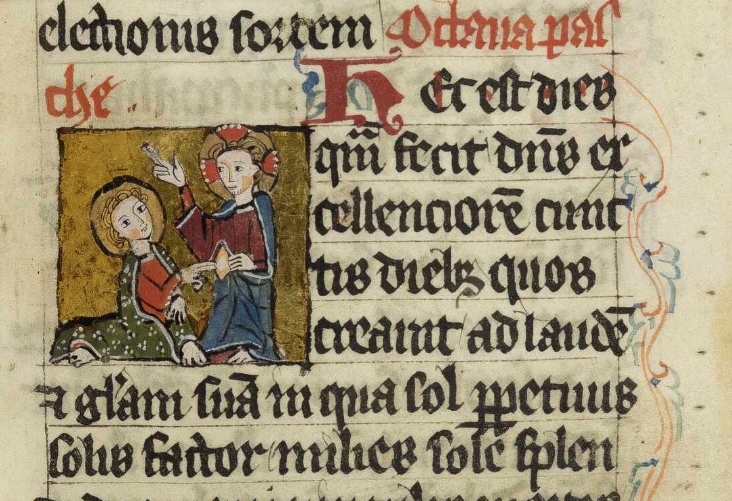 electionis sortem Octaua pas
che Hec est dies
quā fecit dn̄s ex
cellenciorē cunc
tis dieb; quos
creauit ad laudē
⁊ gl'am suā in qua sol ꝑpetuus
solis factor milies sole splen